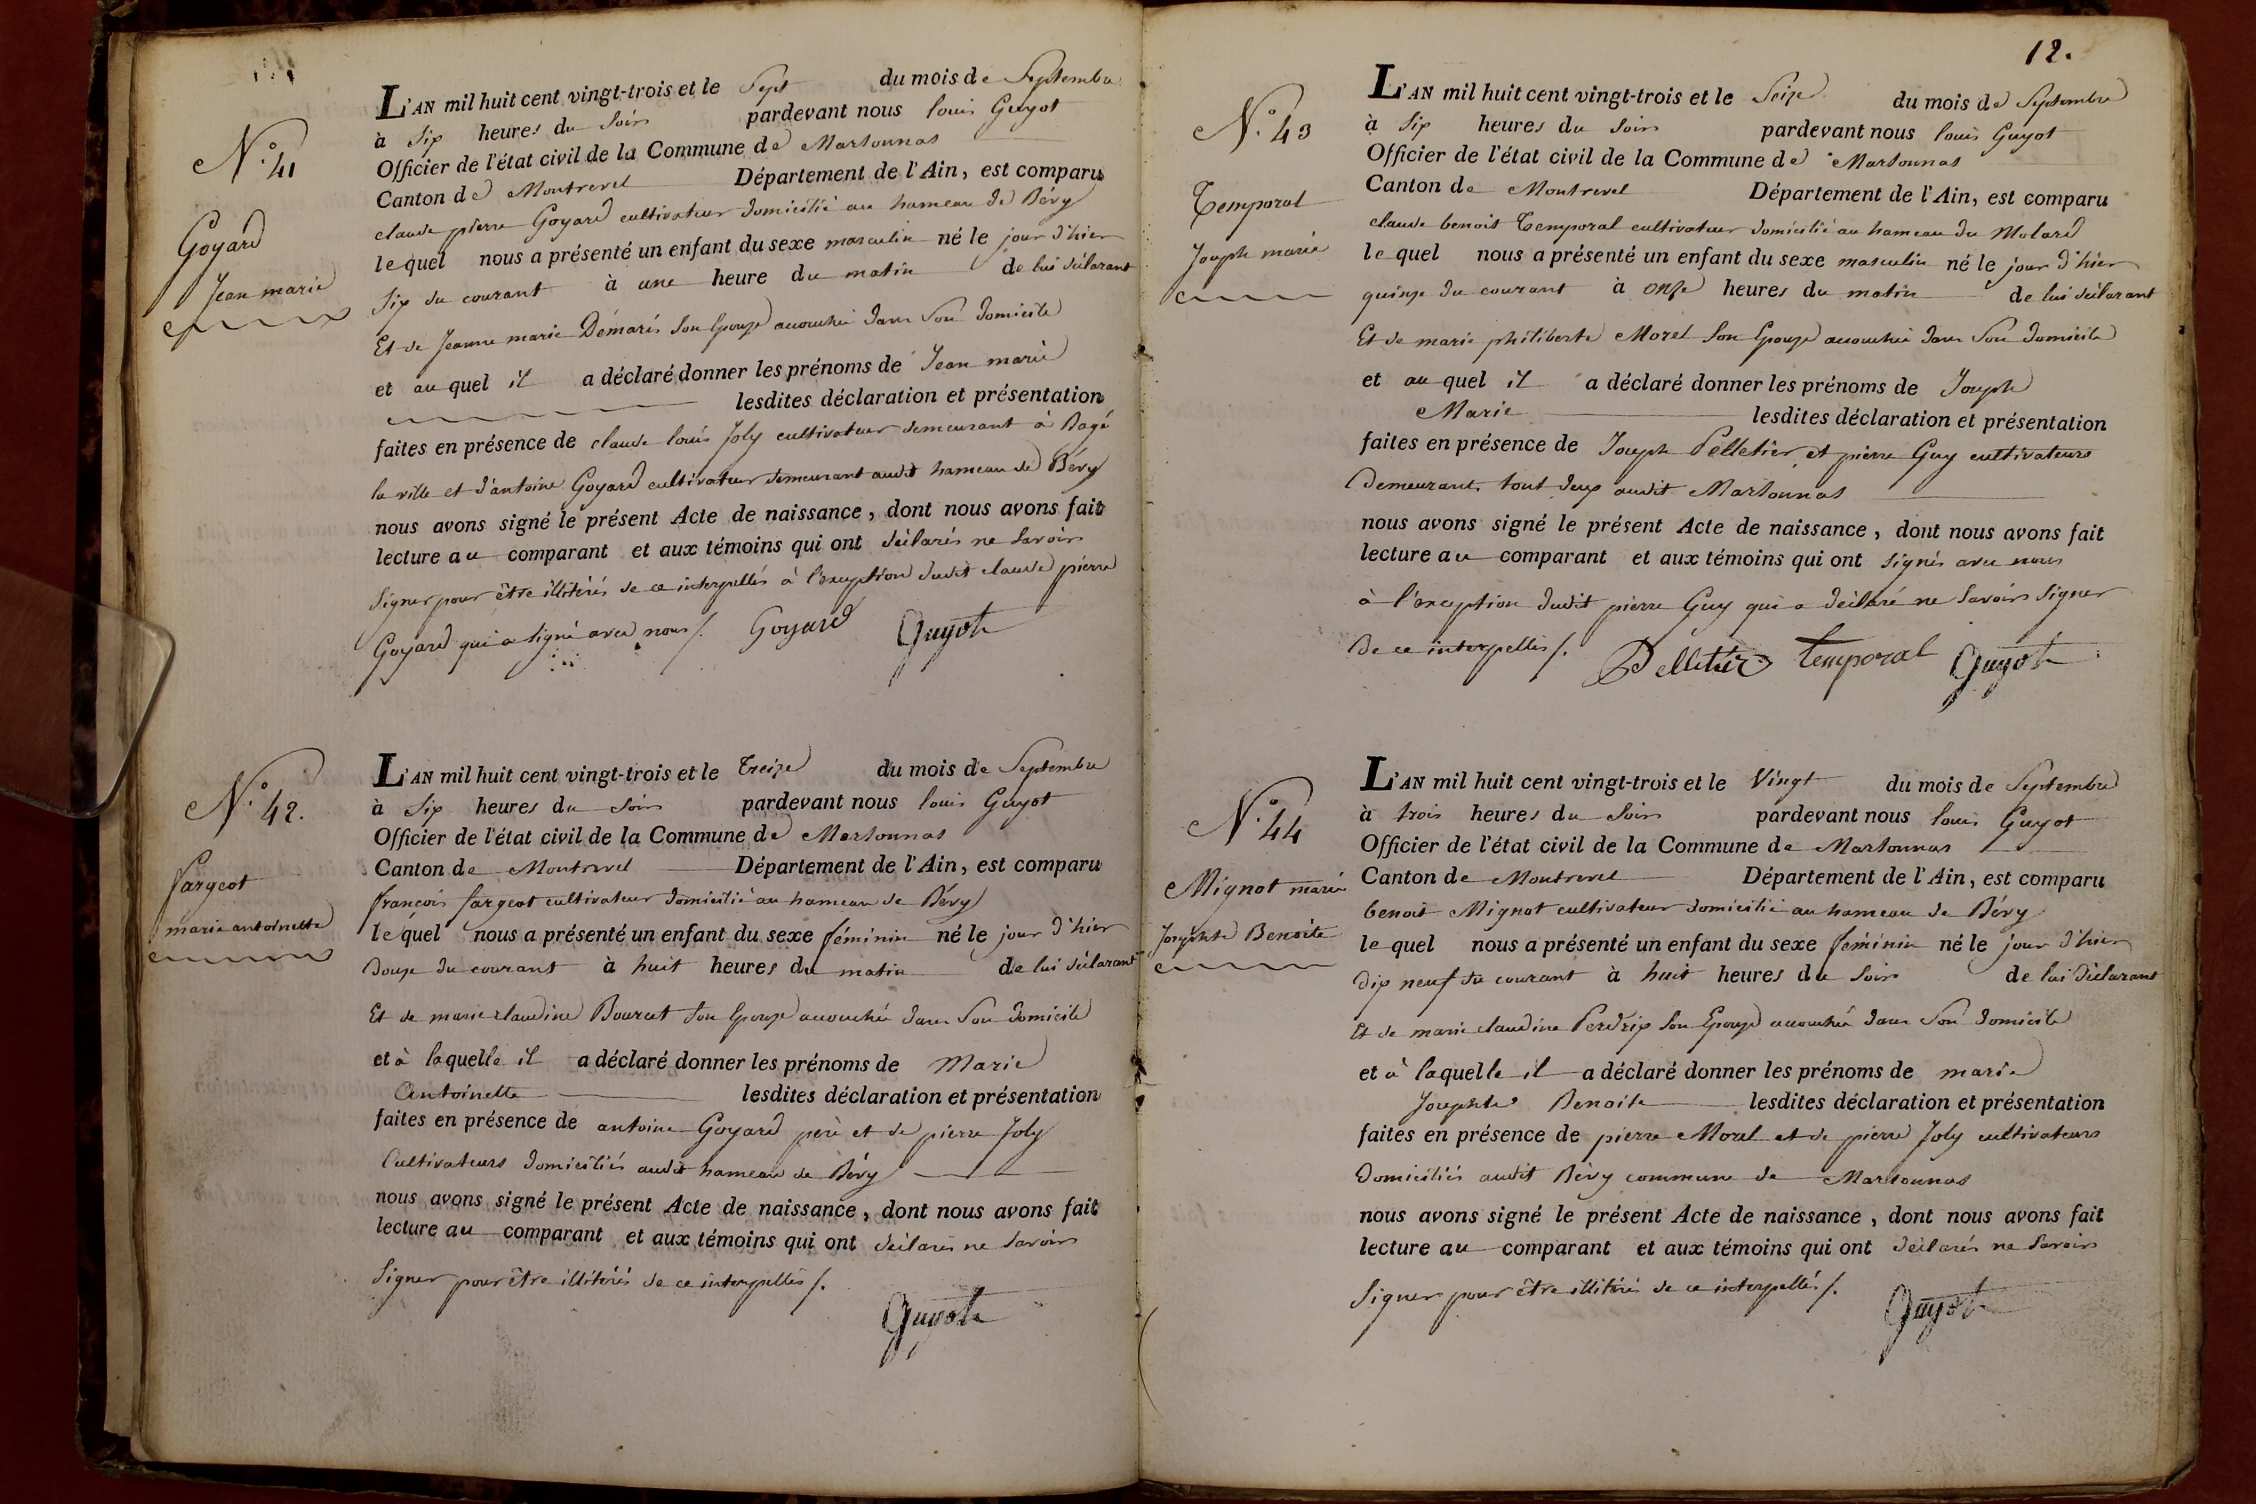 N.° 41
Goyard
Jean marie
L'AN mil huit cent vingt-trois et le Sept du mois de Septembre
à Six heures du Soir pardevant nous louis Guyot
Officier de l'état civil de la Commune de Marsonnas
Canton de Montrevel Département de l'Ain, est comparu
claude pierre Goyard cultivateur domicilié au hameau de Béry
lequel nous a présenté un enfant du sexe masculin né le jour d'hier
Six du courant à une heure du matin de lui déclarant
Et de Jeanne marie Démaris Son Epouse accouchée dans Son domicile
et au quel il a déclaré donner les prénoms de Jean marie
lesdites déclaration et présentation
faites en présence de claude louis Joly cultivateur demeurant à Bagé
la ville et d'antoine Goyard cultivateur demeurant audit hameau de Béry
nous avons signé le présent Acte de naissance, dont nous avons fait
lecture au comparant et aux témoins qui ont déclarés ne Savoir
Signer pour être illitérés de ce interpellés à l'exception dudit claude pierre
Goyard qui a Signé avec nous /. Goyard Guyot
N.° 42.
fargeot
marie antoinette
L'AN mil huit cent vingt-trois et le Treize du mois de Septembre
à Six heures du Soir pardevant nous louis Guyot
Officier de l'état civil de la Commune de Marsonnas
Canton de Montrevel Département de l'Ain, est comparu
françois fargeot cultivateur domicilié au hameau de Béry
lequel nous a présenté un enfant du sexe féminin né le jour d'hier
douze du courant à huit heures du matin de lui déclarant
Et de marie claudine Bourcet Son Epouse accouchée dans Son domicile
et à laquelle il a déclaré donner les prénoms de Marie
Antoinette lesdites déclaration et présentation
faites en présence de antoine Goyard père et de pierre Joly
Cultivateurs domiciliés audit hameau de Béry
nous avons signé le présent Acte de naissance, dont nous avons fait
lecture au comparant et aux témoins qui ont déclarés ne Savoir
Signer pour être illitérés de ce interpellés /.
Guyot
12.
N.° 43
Temporal
Joseph marie
L'AN mil huit cent vingt-trois et le Seize du mois de Septembre
à Six heures du Soir pardevant nous louis Guyot
Officier de l'état civil de la Commune de Marsonnas
Canton de Montrevel Département de l'Ain, est comparu
claude benoit Temporal cultivateur domicilié au hameau du Molard
lequel nous a présenté un enfant du sexe masculin né le jour d'hier
quinze du courant à onze heures du matin de lui déclarant
Et de marie philiberte Morel Son Epouse accouchée dans Son domicile
et au quel il a déclaré donner les prénoms de Joseph
Marie lesdites déclaration et présentation
faites en présence de Joseph Pelletier et pierre Guy cultivateurs
Demeurants tout deux audit Marsonnas
nous avons signé le présent Acte de naissance, dont nous avons fait
lecture au comparant et aux témoins qui ont Signés avec nous
à l'exception dudit pierre Guy qui a déclaré ne Savoir Signer
De ce interpellés /. Pelletier temporal Guyot
N.° 44
Mignot marie
Josephte Benoite
L'AN mil huit cent vingt-trois et le Vingt du mois de Septembre
à trois heures du Soir pardevant nous louis Guyot
Officier de l'état civil de la Commune de Marsonnas
Canton de Montrevel Département de l'Ain, est comparu
benoit Mignot cultivateur domicilié au hameau de Béry
lequel nous a présenté un enfant du sexe féminin né le jour d'hier
dix neuf du courant à huit heures du Soir de lui déclarant
Et de marie claudine Perdrix Son Epouse accouchée dans Son domicile
et à laquelle il a déclaré donner les prénoms de marie
Josephte Benoite lesdites déclaration et présentation
faites en présence de pierre Morel et de pierre Joly cultivateurs
Domiciliés audit Béry commune de Marsonnas
nous avons signé le présent Acte de naissance, dont nous avons fait
lecture au comparant et aux témoins qui ont déclarés ne Savoir
Signer pour être illitérés de ce interpellés /. Guyot